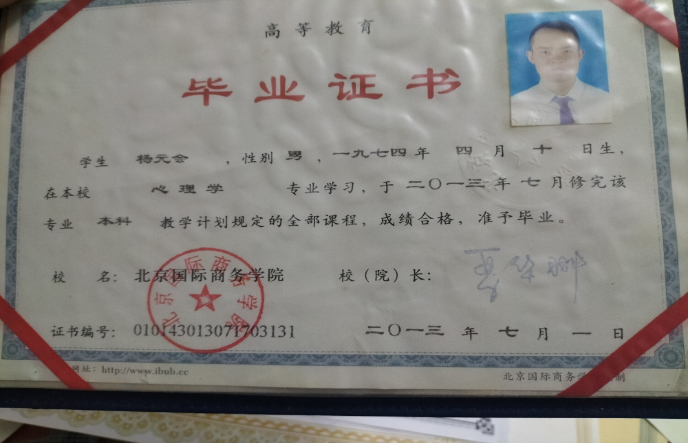 高等教育
毕业证书
学生 杨元会 ，性别 男 ，一九七四年 四 月 十 日生，
在本校 心理学 专业学习，于 二〇一三 年 七 月修完该
专业 本科 教学计划规定的全部课程，成绩合格，准予毕业。
校 名： 北京国际商务学院 校（院）长：
北京国际商务学院
证书编号： 010143013071703131 二〇一三 年 七 月 一 日
网址：http://www.ibuh.cc 北京国际商务学 制